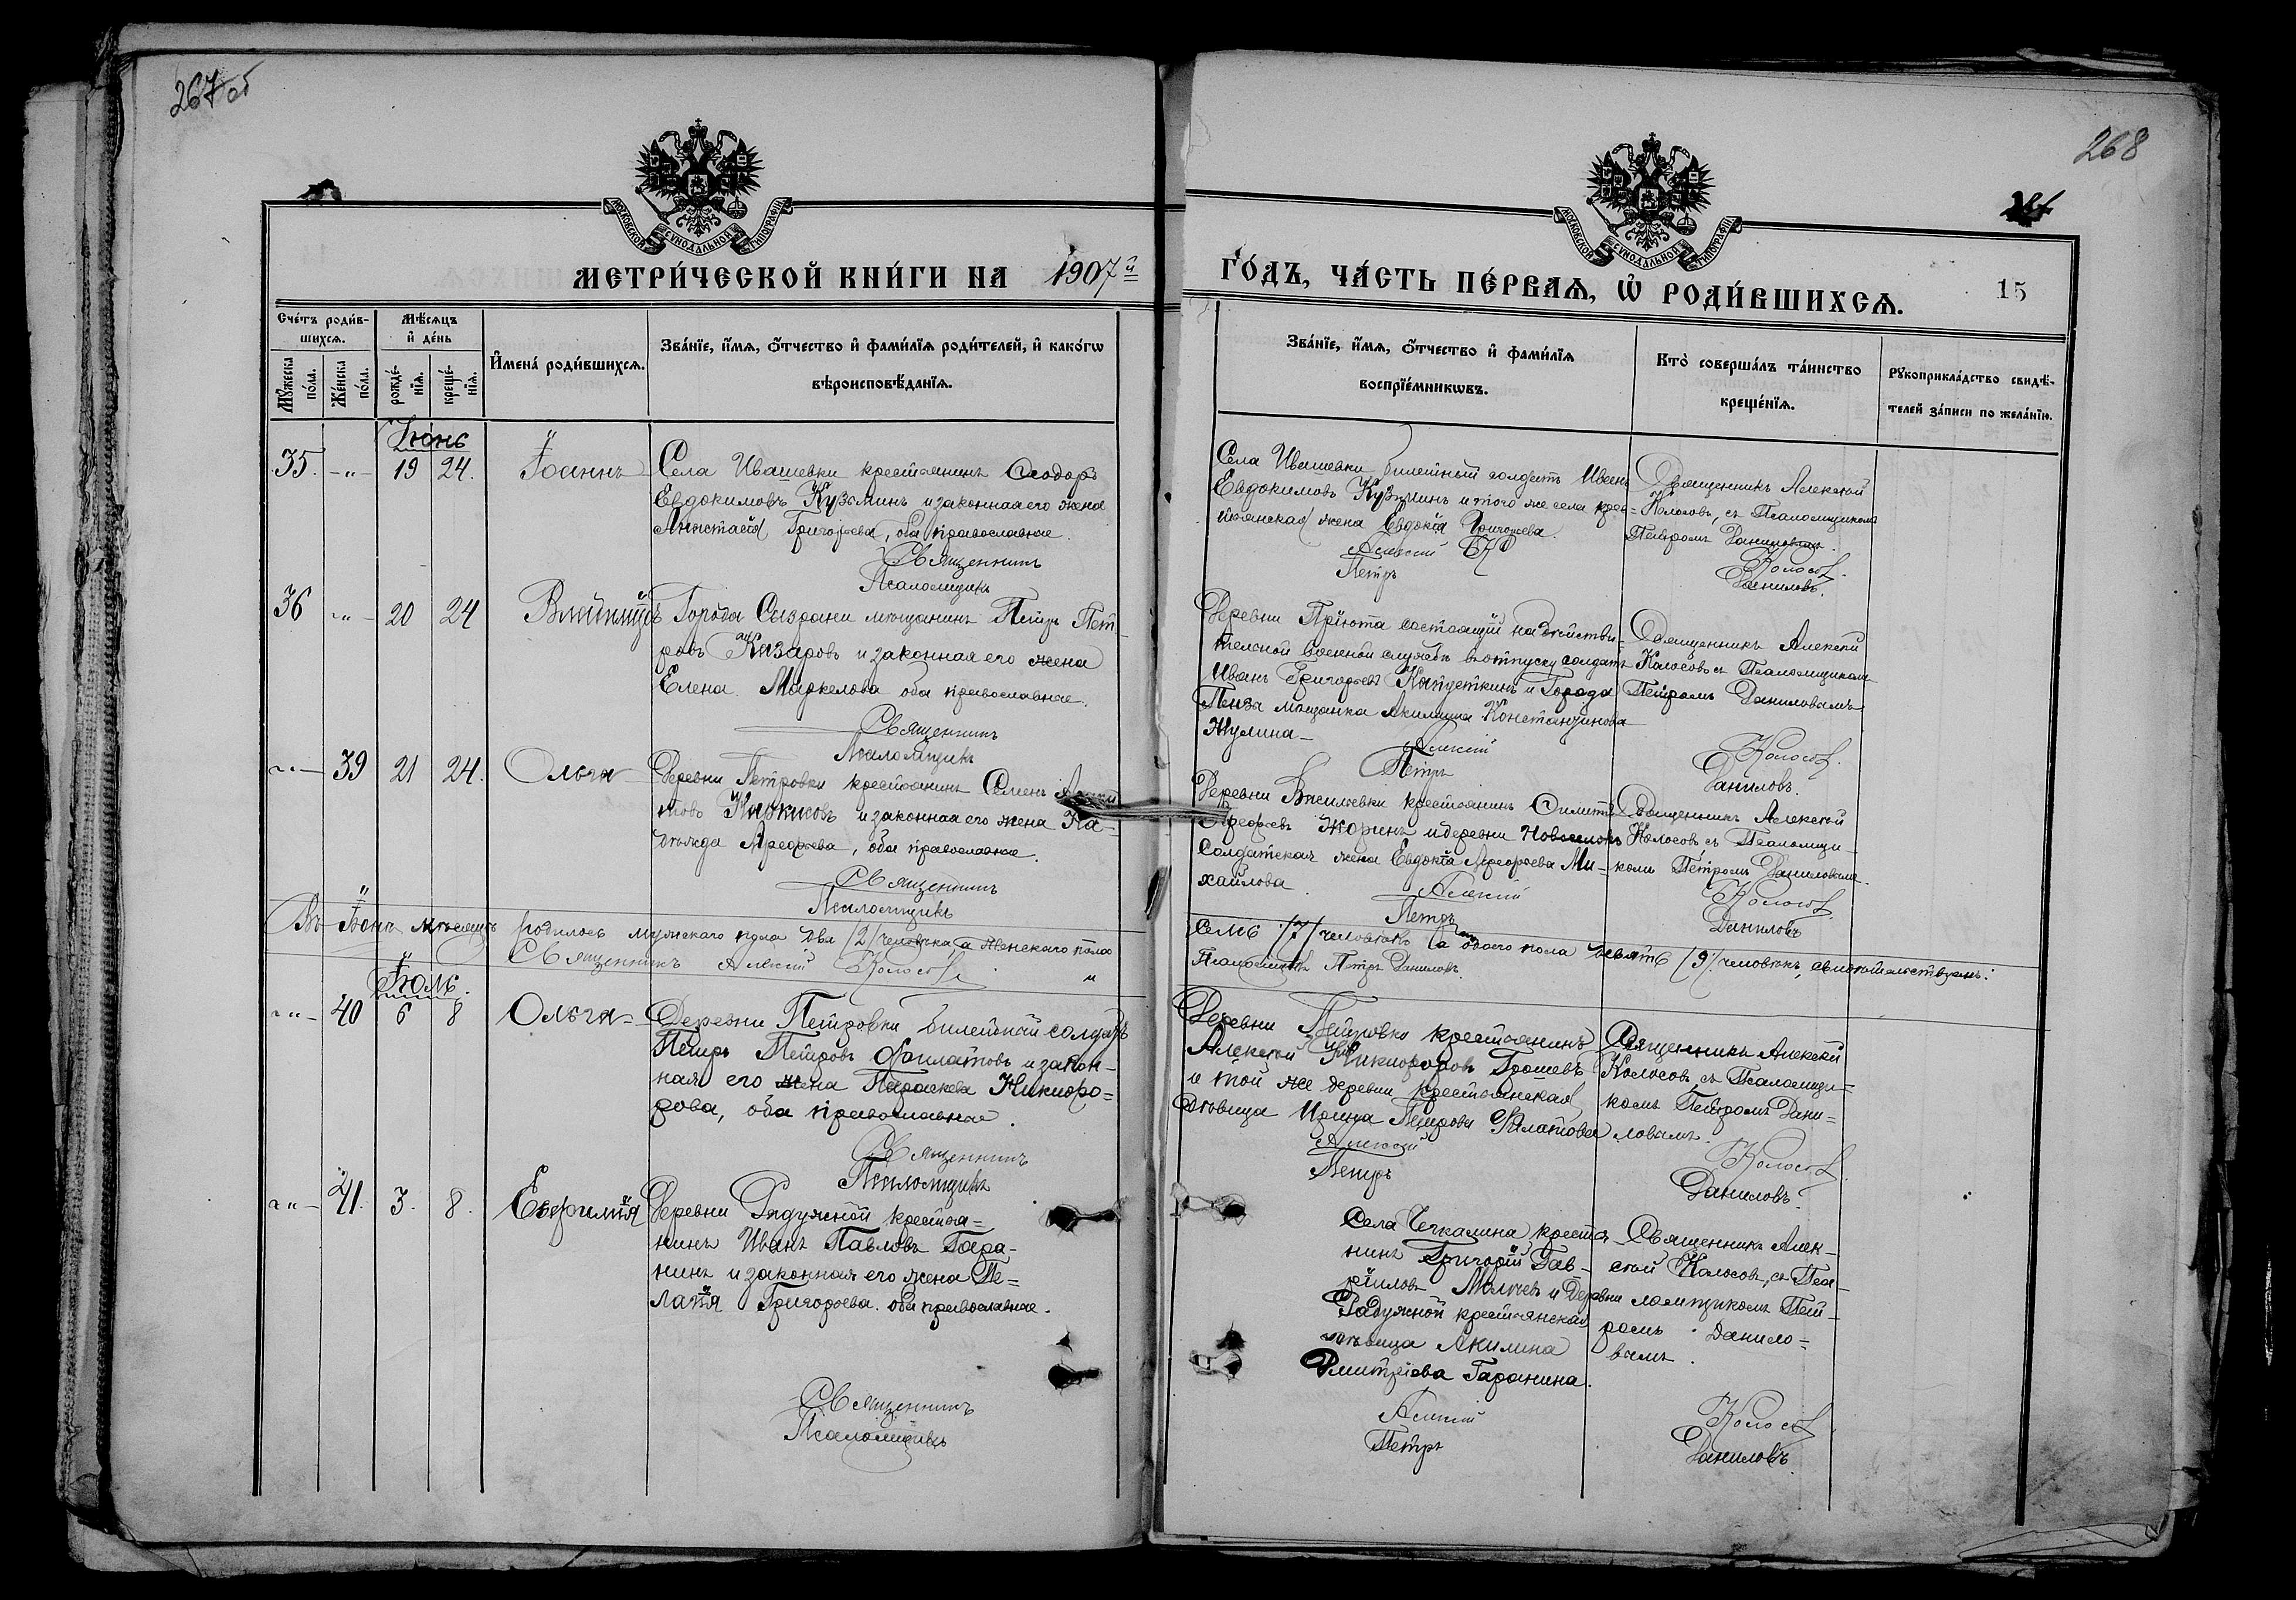 267 об
МОСКОВСКОЙ СѴНОДАЛЬНОЙ ТИПОГРАФІИ
МЕТРИ́ЧЕСКОЙ КНИ́ГИ НА 1907й
Сче́тъ роди́в-
шихся.
Мѣ́сяцъ
и҆ де́нь
Му́жеска
по́ла.
Же́нска
по́ла.
рожде́-
нїя.
креще́-
нїя.
И҆мена̀ роди́вшихся.
Зва́нїе, и҆́мя, ѻ҆́тчество и҆ фами́лїя роди́телей, и҆ како́гѡ
вѣроисповѣ́данїя.
Іюнь
35. -"- 19 24. Іоаннъ
Села Ивашевки крестьянинъ Ѳеодоръ
Евдокимовъ Кузьминъ и законная его жена
Анастасія Григорьева, оба православные.
Священникъ
Псаломщикъ
36 -"- 20 24 Владиміръ
Города Сызрани мѣщанинъ Петръ Пет-
ровъ и законная его жена
Елена Маркелова оба православные.
Священникъ
Псаломщикъ
-"- 39 21 24. Ольга
Деревни Петровки крестьянинъ Семенъ
и законная его жена На-
дежда Арефьева, оба православные.
Священникъ
Псаломщикъ
Въ Іюнь мѣсяцъ родилось мужскаго пола два /2/ человѣка, а женскаго пола
Священникъ Алексій Колосовъ
Іюль.
-"- 40 6 8 Ольга
Деревни Петровки билетный солдатъ
Петръ Петровъ Филатовъ и закон-
ная его жена Параскева Никифо-
рова, оба православные.
Священникъ
Псаломщикъ
-"- 41. 3. 8. Евфимія
Деревни Радужной крестья-
нинъ Иванъ Павловъ Гара-
нинъ и законная его жена Пе-
лагія Григорьева. оба православные.
Священникъ
Псаломщикъ
268
МОСКОВСКОЙ СѴНОДАЛЬНОЙ ТИПОГРАФІИ
ГО́ДЪ, ЧА́СТЬ ПЕ́РВАЯ, Ѽ РОДИ́ВШИХСЯ.
15
Зва́нїе, и҆́мя, ѻ҆́тчество и҆ фами́лїя
воспрїе́мникѡвъ.
Кто̀ соверша́лъ та́инство
креще́нїя.
Рꙋкоприкла́дство свидѣ́-
телей за́писи по жела́нїю.
Села Ивашевки билетный солдатъ Иванъ
Евдокимовъ Кузьминъ и того же села крес-
тьянская жена Евдокія Григорьева.
Алексій
Петръ
Священникъ Алексѣй
Колосовъ, съ Псаломщикомъ
Петромъ Даниловымъ.
Колосовъ.
Даниловъ.
Деревни Пріюта состоящій на дѣйстви-
тельной военной службѣ въ отпуску солдатъ
Иванъ Григорьевъ Капусткинъ и Города
Пенза мѣщанка Акилина Константинова
Жулина
Алексій
Петръ
Священникъ Алексѣй
Колосовъ съ Псаломщикомъ
Петромъ Даниловымъ
Колосовъ.
Даниловъ.
Деревни Васильевки крестьянинъ
Арефьевъ Жаринъ и деревни Новоселокъ
Солдатская жена Евдокія Арефьева Ми-
хайлова.
Алексій
Петръ
Священникъ Алексѣй
Колосовъ, съ Псаломщи-
комъ Петромъ Даниловымъ.
Колосовъ.
Даниловъ
семь /7/ человѣкъ а обоего пола девять /9/ человѣкъ, свидѣтельствуемъ:
Псаломщикъ Петръ Даниловъ.
Деревни Петровки крестьянинъ
Алексѣй Никифоровъ Грошевъ
и той же деревни крестьянская
дѣвица Ирина Петрова Филатова
Алексій
Петръ
Священникъ Алексѣй
Колосовъ, съ Псаломщи-
комъ Петромъ Дани-
ловымъ.
Колосовъ.
Даниловъ.
Села Чекалина крестья-
нинъ Григорій Гав-
риловъ и Деревни
Радужной крестьянская
дѣвица Акилина
Дмитріева Гаранина.
Алексій
Петръ
Священникъ Алек-
сѣй Колосовъ, съ Пса-
ломщикомъ Пет-
ромъ Данило-
вымъ.
Колосовъ
Даниловъ.